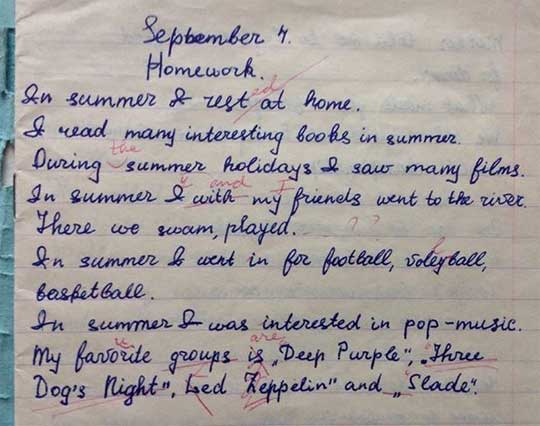 September 4.
Homework.
ed
In summer I rest at home.
I read many interesting books in summer.
the
During summer holidays I saw many films.
and I
In summer I with my friends went to the river.
? ?
There we swam, played.
In summer I went in for football, voleyball,
l
basketball.
In summer I was interested in pop-music.
u are
My favorite groups is „Deep Purple“, „Three
Dog's Night“, Led Zeppelin“ and „Slade“.